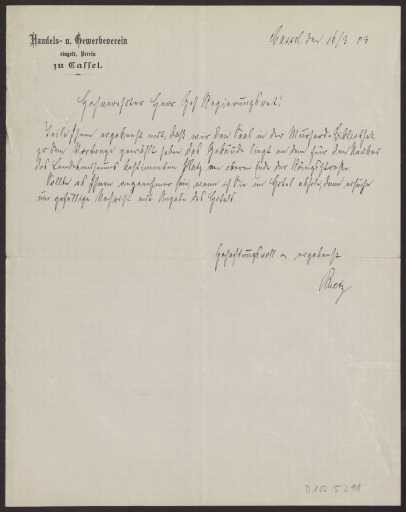 Handels- u. Gewerbeverein
eingetr. Verein
zu Cassel.
Cassel, den 16/3 03
Hochverehrter Herr Geh Regierungsrat!
Teile Ihnen ergebenst mit, daß wir den Saal in der Murhard-Bibliothek
zu dem Vortrage gewählt haben das Gebäude liegt an dem für den Neubau
des Landesmuseums bestimmten Platz am oberen Ende der Königsstraße.
Sollte es Ihnen angenehmer sein, wenn ich Sie im Hotel abhole, dann ersuche
um gefällige Nachricht mit Angabe des Hotels.
Hochachtungsvoll u ergebenst